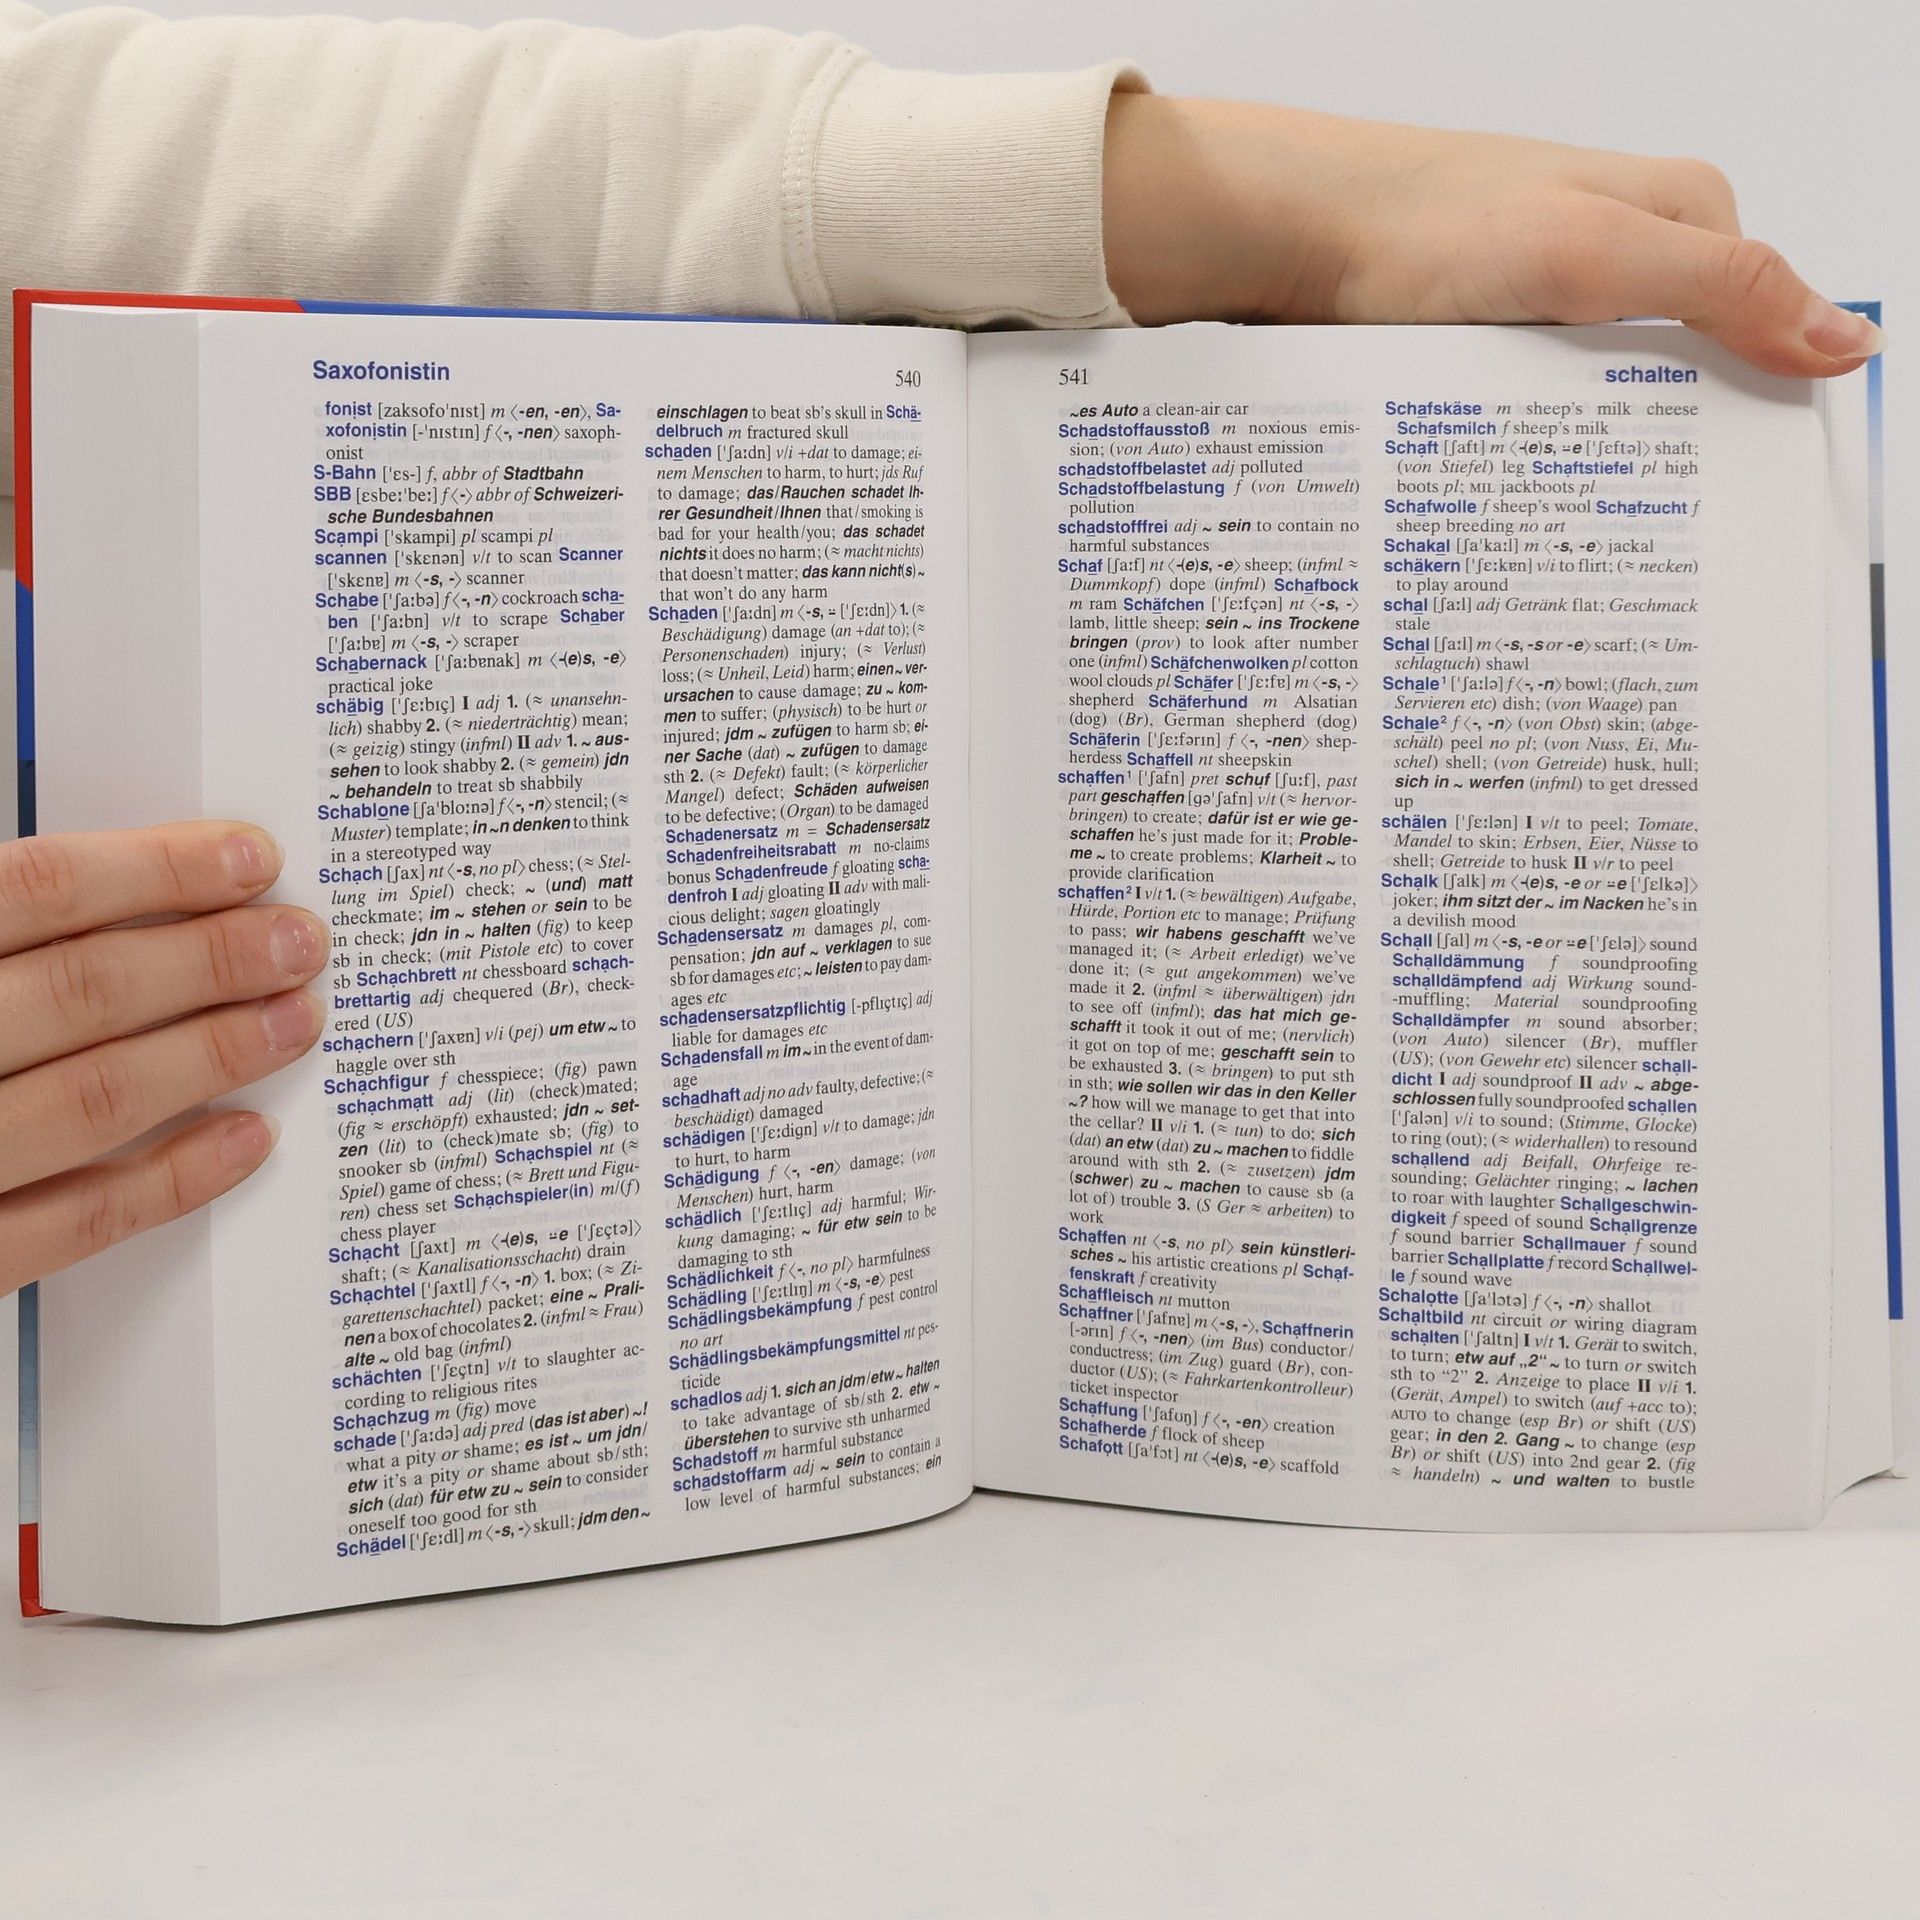 Saxofonistin
540
fonist [zaksofo'nɪst] m ⟨-en, -en⟩, Sa-
xofonistin [-'nɪstɪn] f ⟨-, -nen⟩ saxoph-
onist
S-Bahn ['ɛs-] f, abbr of Stadtbahn
SBB [ɛsbeː'beː] f ⟨-⟩ abbr of Schweizeri-
sche Bundesbahnen
Scampi ['skampi] pl scampi pl
scannen ['skɛnən] v/t to scan Scanner
['skɛnɐ] m ⟨-s, -⟩ scanner
Schabe ['ʃaːbə] f ⟨-, -n⟩ cockroach scha-
ben ['ʃaːbn] v/t to scrape Schaber
['ʃaːbɐ] m ⟨-s, -⟩ scraper
Schabernack ['ʃaːbɐnak] m ⟨-(e)s, -e⟩
practical joke
schäbig ['ʃɛːbɪç] I adj 1. (≈ unansehn-
lich) shabby 2. (≈ niederträchtig) mean;
(≈ geizig) stingy (infml) II adv 1. ~ aus-
sehen to look shabby 2. (≈ gemein) jdn
~ behandeln to treat sb shabbily
Schablone [ʃa'bloːnə] f ⟨-, -n⟩ stencil; (≈
Muster) template; in ~n denken to think
in a stereotyped way
Schach [ʃax] nt ⟨-s, no pl⟩ chess; (≈ Stel-
lung im Spiel) check; ~ (und) matt
checkmate; im ~ stehen or sein to be
in check; jdn in ~ halten (fig) to keep
sb in check; (mit Pistole etc) to cover
sb Schachbrett nt chessboard schach-
brettartig adj chequered (Br), check-
ered (US)
schachern ['ʃaxɐn] v/i (pej) um etw ~ to
haggle over sth
Schachfigur f chesspiece; (fig) pawn
schachmatt adj (lit) (check)mated;
(fig ≈ erschöpft) exhausted; jdn ~ set-
zen (lit) to (check)mate sb; (fig) to
snooker sb (infml) Schachspiel nt (≈
Spiel) game of chess; (≈ Brett und Figu-
ren) chess set Schachspieler(in) m/(f)
chess player
Schacht [ʃaxt] m ⟨-(e)s, ⸚e ['ʃɛçtə]⟩
shaft; (≈ Kanalisationsschacht) drain
Schachtel ['ʃaxtl] f ⟨-, -n⟩ 1. box; (≈ Zi-
garettenschachtel) packet; eine ~ Prali-
nen a box of chocolates 2. (infml ≈ Frau)
alte ~ old bag (infml)
schächten ['ʃɛçtn] v/t to slaughter ac-
cording to religious rites
Schachzug m (fig) move
schade ['ʃaːdə] adj pred (das ist aber) ~!
what a pity or shame; es ist ~ um jdn/
etw it's a pity or shame about sb/sth;
sich (dat) für etw zu ~ sein to consider
oneself too good for sth
Schädel ['ʃɛːdl] m ⟨-s, -⟩ skull; jdm den ~
einschlagen to beat sb's skull in Schä-
delbruch m fractured skull
schaden ['ʃaːdn] v/i +dat to damage; ei-
nem Menschen to harm, to hurt; jds Ruf
to damage; das/Rauchen schadet Ih-
rer Gesundheit/Ihnen that/smoking is
bad for your health/you; das schadet
nichts it does no harm; (≈ macht nichts)
that doesn't matter; das kann nicht(s) ~
that won't do any harm
Schaden ['ʃaːdn] m ⟨-s, ⸚ ['ʃɛːdn]⟩ 1. (≈
Beschädigung) damage (an +dat to); (≈
Personenschaden) injury; (≈ Verlust)
loss; (≈ Unheil, Leid) harm; einen ~ ver-
ursachen to cause damage; zu ~ kom-
men to suffer; (physisch) to be hurt or
injured; jdm ~ zufügen to harm sb; ei-
ner Sache (dat) ~ zufügen to damage
sth 2. (≈ Defekt) fault; (≈ körperlicher
Mangel) defect; Schäden aufweisen
to be defective; (Organ) to be damaged
Schadenersatz m = Schadensersatz
Schadenfreiheitsrabatt m no-claims
bonus Schadenfreude f gloating scha-
denfroh I adj gloating II adv with mali-
cious delight; sagen gloatingly
Schadensersatz m damages pl, com-
pensation; jdn auf ~ verklagen to sue
sb for damages etc; ~ leisten to pay dam-
ages etc
schadensersatzpflichtig [-pflɪçtɪç] adj
liable for damages etc
Schadensfall m im ~ in the event of dam-
age
schadhaft adj no adv faulty, defective; (≈
beschädigt) damaged
schädigen ['ʃɛːdɪgn] v/t to damage; jdn
to hurt, to harm
Schädigung f ⟨-, -en⟩ damage; (von
Menschen) hurt, harm
schädlich ['ʃɛːtlɪç] adj harmful; Wir-
kung damaging; ~ für etw sein to be
damaging to sth
Schädlichkeit f ⟨-, no pl⟩ harmfulness
Schädling ['ʃɛːtlɪŋ] m ⟨-s, -e⟩ pest
Schädlingsbekämpfung f pest control
no art
Schädlingsbekämpfungsmittel nt pes-
ticide
schadlos adj 1. sich an jdm/etw ~ halten
to take advantage of sb/sth 2. etw ~
überstehen to survive sth unharmed
Schadstoff m harmful substance
schadstoffarm adj ~ sein to contain a
low level of harmful substances; ein
541
schalten
~es Auto a clean-air car
Schadstoffausstoß m noxious emis-
sion; (von Auto) exhaust emission
schadstoffbelastet adj polluted
Schadstoffbelastung f (von Umwelt)
pollution
schadstofffrei adj ~ sein to contain no
harmful substances
Schaf [ʃaːf] nt ⟨-(e)s, -e⟩ sheep; (infml ≈
Dummkopf) dope (infml) Schafbock
m ram Schäfchen ['ʃɛːfçən] nt ⟨-s, -⟩
lamb, little sheep; sein ~ ins Trockene
bringen (prov) to look after number
one (infml) Schäfchenwolken pl cotton
wool clouds pl Schäfer ['ʃɛːfɐ] m ⟨-s, -⟩
shepherd Schäferhund m Alsatian
(dog) (Br), German shepherd (dog)
Schäferin ['ʃɛːfərɪn] f ⟨-, -nen⟩ shep-
herdess Schaffell nt sheepskin
schaffen¹ ['ʃafn] pret schuf [ʃuːf], past
part geschaffen [gə'ʃafn] v/t (≈ hervor-
bringen) to create; dafür ist er wie ge-
schaffen he's just made for it; Proble-
me ~ to create problems; Klarheit ~ to
provide clarification
schaffen² I v/t 1. (≈ bewältigen) Aufgabe,
Hürde, Portion etc to manage; Prüfung
to pass; wir habens geschafft we've
managed it; (≈ Arbeit erledigt) we've
done it; (≈ gut angekommen) we've
made it 2. (infml ≈ überwältigen) jdn
to see off (infml); das hat mich ge-
schafft it took it out of me; (nervlich)
it got on top of me; geschafft sein to
be exhausted 3. (≈ bringen) to put sth
in sth; wie sollen wir das in den Keller
~? how will we manage to get that into
the cellar? II v/i 1. (≈ tun) to do; sich
(dat) an etw (dat) zu ~ machen to fiddle
around with sth 2. (≈ zusetzen) jdm
(schwer) zu ~ machen to cause sb (a
lot of) trouble 3. (S Ger ≈ arbeiten) to
work
Schaffen nt ⟨-s, no pl⟩ sein künstleri-
sches ~ his artistic creations pl Schaf-
fenskraft f creativity
Schaffleisch nt mutton
Schaffner ['ʃafnɐ] m ⟨-s, -⟩, Schaffnerin
[-ərɪn] f ⟨-, -nen⟩ (im Bus) conductor/
conductress; (im Zug) guard (Br), con-
ductor (US); (≈ Fahrkartenkontrolleur)
ticket inspector
Schaffung ['ʃafʊŋ] f ⟨-, -en⟩ creation
Schafherde f flock of sheep
Schafott [ʃa'fɔt] nt ⟨-(e)s, -e⟩ scaffold
Schafskäse m sheep's milk cheese
Schafsmilch f sheep's milk
Schaft [ʃaft] m ⟨-(e)s, ⸚e ['ʃɛftə]⟩ shaft;
(von Stiefel) leg Schaftstiefel pl high
boots pl; MIL jackboots pl
Schafwolle f sheep's wool Schafzucht f
sheep breeding no art
Schakal [ʃa'kaːl] m ⟨-s, -e⟩ jackal
schäkern ['ʃɛːkɐn] v/i to flirt; (≈ necken)
to play around
schal [ʃaːl] adj Getränk flat; Geschmack
stale
Schal [ʃaːl] m ⟨-s, -s or -e⟩ scarf; (≈ Um-
schlagtuch) shawl
Schale¹ ['ʃaːlə] f ⟨-, -n⟩ bowl; (flach, zum
Servieren etc) dish; (von Waage) pan
Schale² f ⟨-, -n⟩ (von Obst) skin; (abge-
schält) peel no pl; (von Nuss, Ei, Mu-
schel) shell; (von Getreide) husk, hull;
sich in ~ werfen (infml) to get dressed
up
schälen ['ʃɛːlən] I v/t to peel; Tomate,
Mandel to skin; Erbsen, Eier, Nüsse to
shell; Getreide to husk II v/r to peel
Schalk [ʃalk] m ⟨-(e)s, -e or ⸚e ['ʃɛlkə]⟩
joker; ihm sitzt der ~ im Nacken he's in
a devilish mood
Schall [ʃal] m ⟨-s, -e or ⸚e ['ʃɛlə]⟩ sound
Schalldämmung f soundproofing
schalldämpfend adj Wirkung sound-
-muffling; Material soundproofing
Schalldämpfer m sound absorber;
(von Auto) silencer (Br), muffler
(US); (von Gewehr etc) silencer schall-
dicht I adj soundproof II adv ~ abge-
schlossen fully soundproofed schallen
['ʃalən] v/i to sound; (Stimme, Glocke)
to ring (out); (≈ widerhallen) to resound
schallend adj Beifall, Ohrfeige re-
sounding; Gelächter ringing; ~ lachen
to roar with laughter Schallgeschwin-
digkeit f speed of sound Schallgrenze
f sound barrier Schallmauer f sound
barrier Schallplatte f record Schallwel-
le f sound wave
Schalotte [ʃa'lɔtə] f ⟨-, -n⟩ shallot
Schaltbild nt circuit or wiring diagram
schalten ['ʃaltn] I v/t 1. Gerät to switch,
to turn; etw auf „2“ ~ to turn or switch
sth to “2” 2. Anzeige to place II v/i 1.
(Gerät, Ampel) to switch (auf +acc to);
AUTO to change (esp Br) or shift (US)
gear; in den 2. Gang ~ to change (esp
Br) or shift (US) into 2nd gear 2. (fig
≈ handeln) ~ und walten to bustle